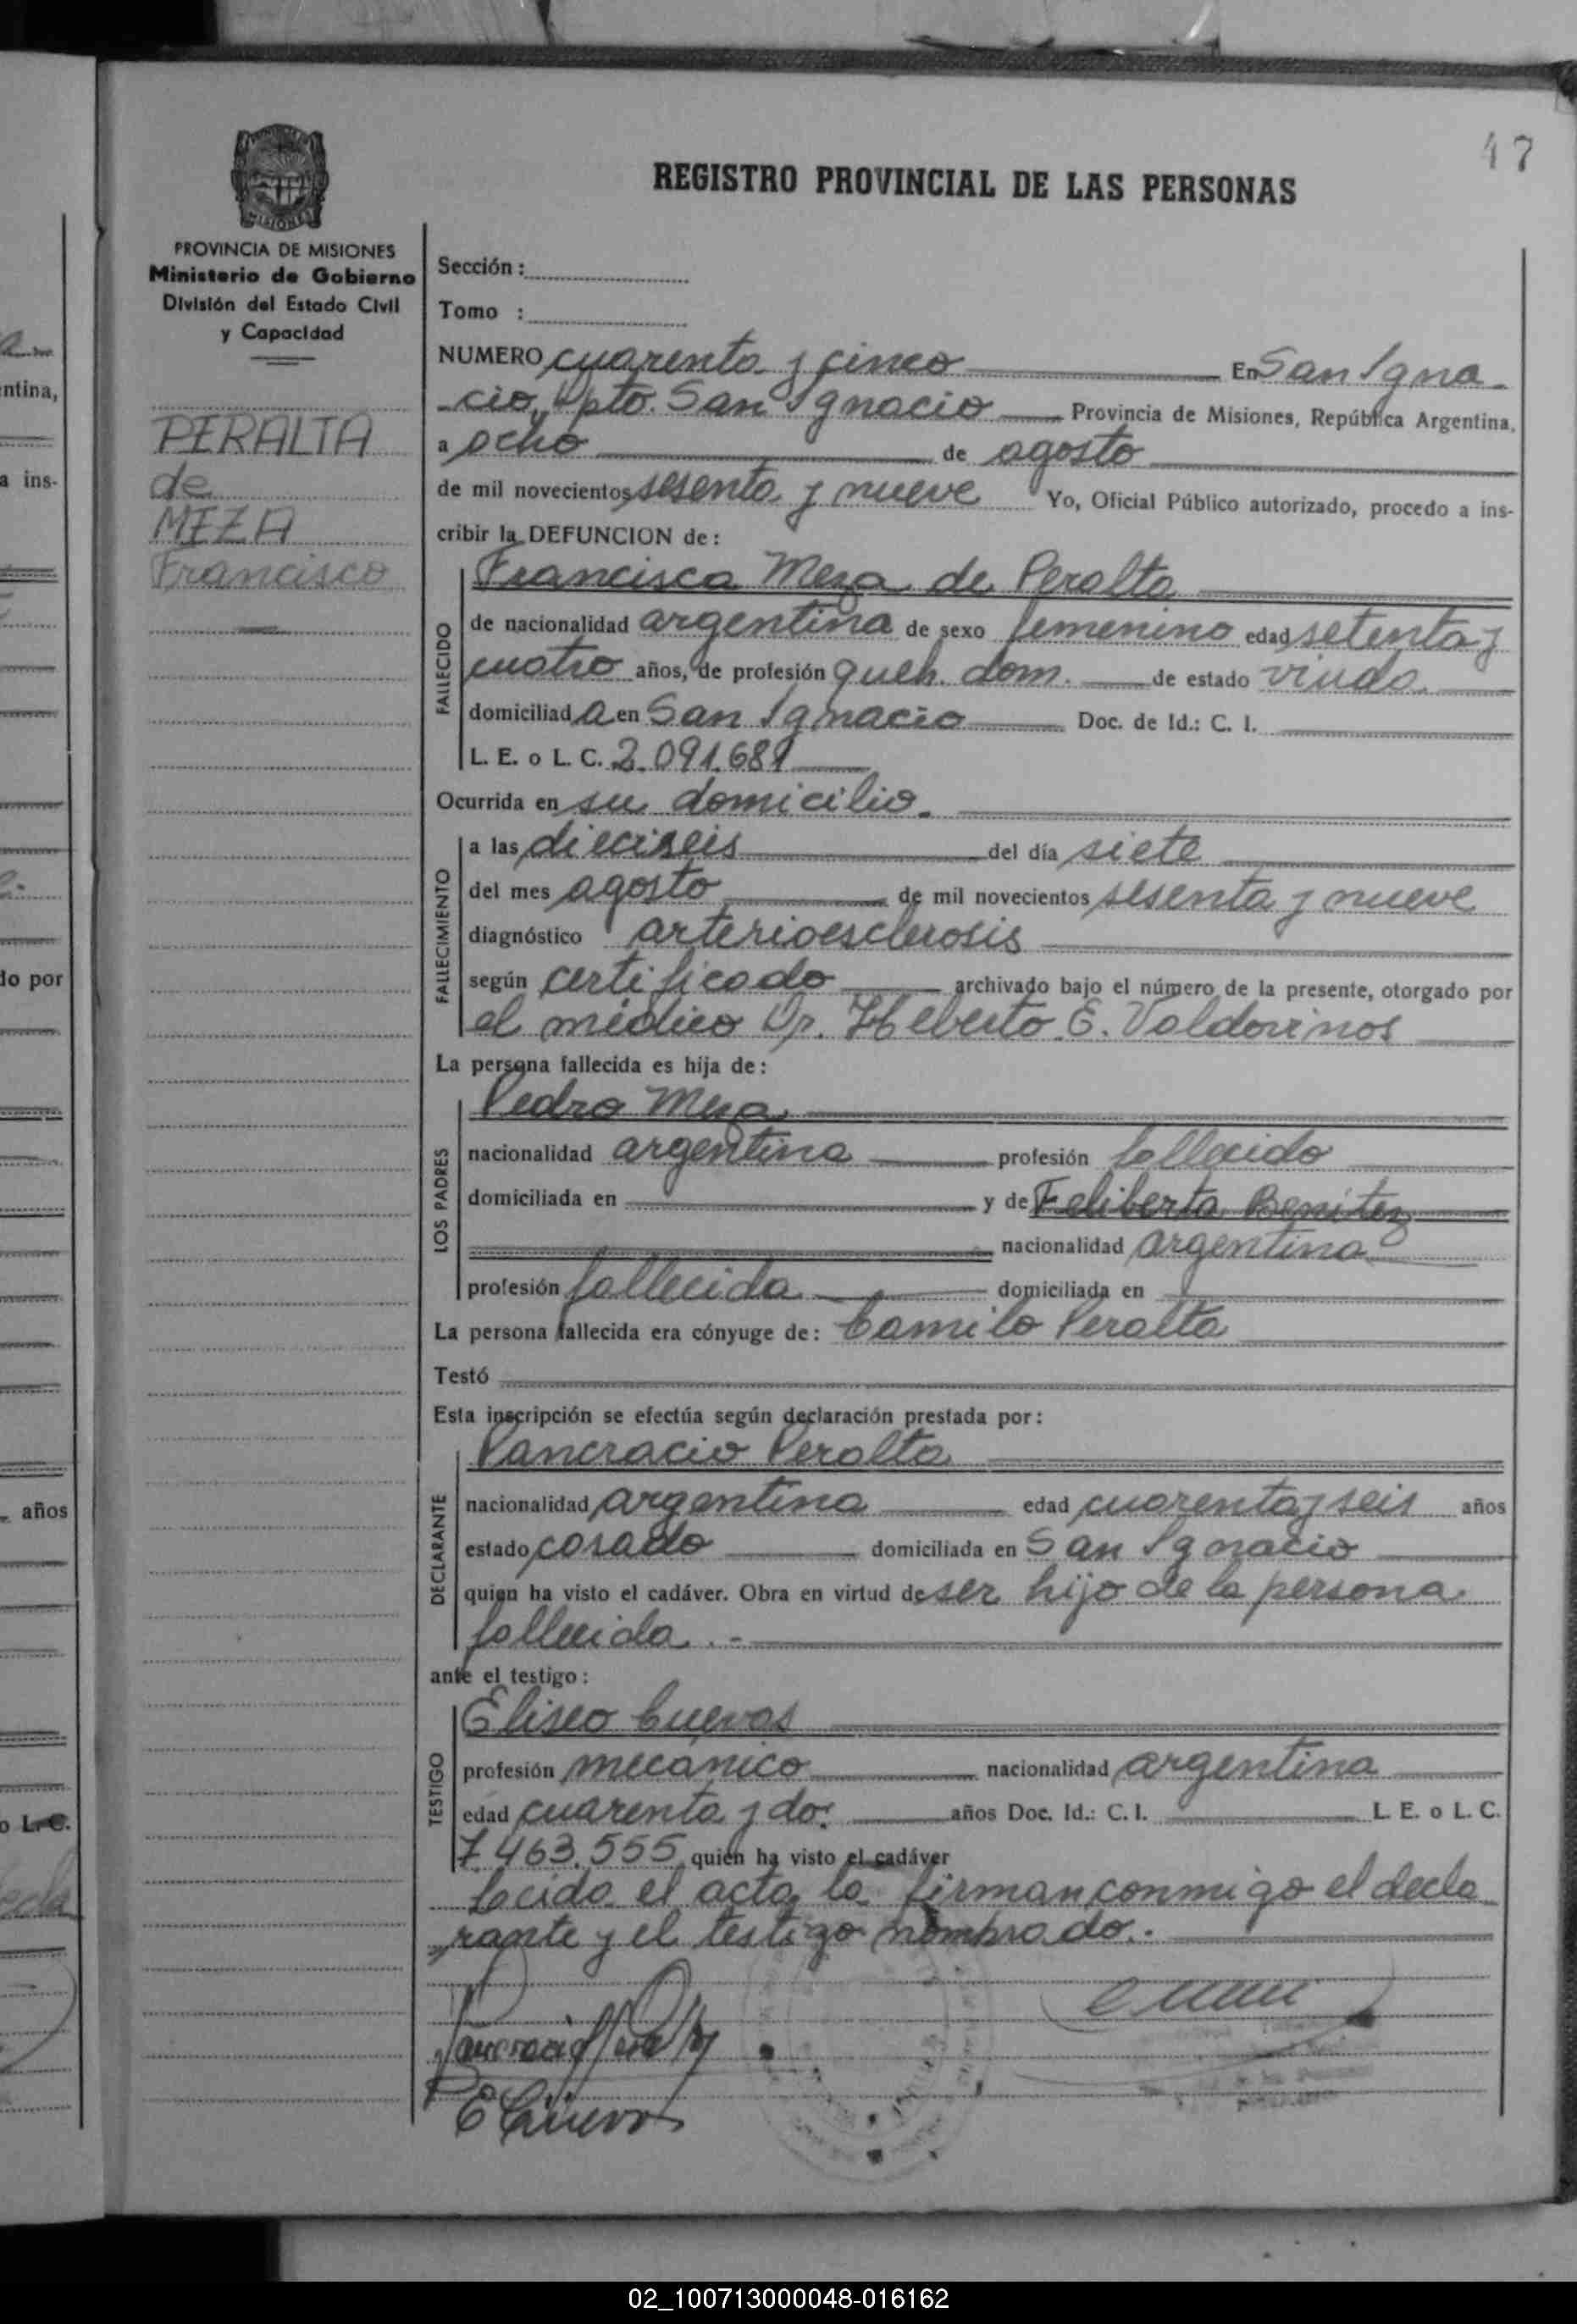 47
REGISTRO PROVINCIAL DE LAS PERSONAS
PROVINCIA DE MISIONES
Ministerio de Gobierno
División del Estado Civil
y Capacidad
PERALTA
de
MEZA
Francisca
Sección:
Tomo :
NUMERO cuarenta y cinco En San Igna
cio, Dpto. San Ignacio Provincia de Misiones, República Argentina,
a ocho de agosto
de mil novecientos sesenta y nueve Yo, Oficial Público autorizado, procedo a ins-
cribir la DEFUNCION de:
FALLECIDO
Francisca Meza de Peralta
de nacionalidad argentina de sexo femenino edad setenta y
cuatro años, de profesión queh. dom. de estado viuda
domiciliad a en San Ignacio Doc. de Id.: C. I.
L. E. o L. C. 2.091.681
Ocurrida en su domicilio.
FALLECIMIENTO
a las dieciseis del día siete
del mes agosto de mil novecientos sesenta y nueve
diagnóstico arterioesclerosis
según certificado archivado bajo el número de la presente, otorgado por
el médico Dr. Heberto E. Valdovinos
La persona fallecida es hija de:
LOS PADRES
Pedro Meza
nacionalidad argentina profesión fallecido
domiciliada en y de Feliberta Benitez
nacionalidad argentina
profesión fallecida domiciliada en
La persona fallecida era cónyuge de: Camilo Peralta
Testó
Esta inscripción se efectúa según declaración prestada por:
DECLARANTE
Pancracio Peralta
nacionalidad argentina edad cuarenta y seis años
estado casado domiciliada en San Ignacio
quien ha visto el cadáver. Obra en virtud de ser hijo de la persona
fallecida.-
ante el testigo:
TESTIGO
Eliseo Cuevas
profesión mecánico nacionalidad argentina
edad cuarenta y dos años Doc. Id.: C. I. L. E. o L. C.
7.463.555 quien ha visto el cadáver
Leida el acta, la firman conmigo el decla
rante y el testigo nombrado.-
Pancracio Peralta
E Cuevas
ntina,
a ins-
do por
años
o L.C.
02_100713000048-016162